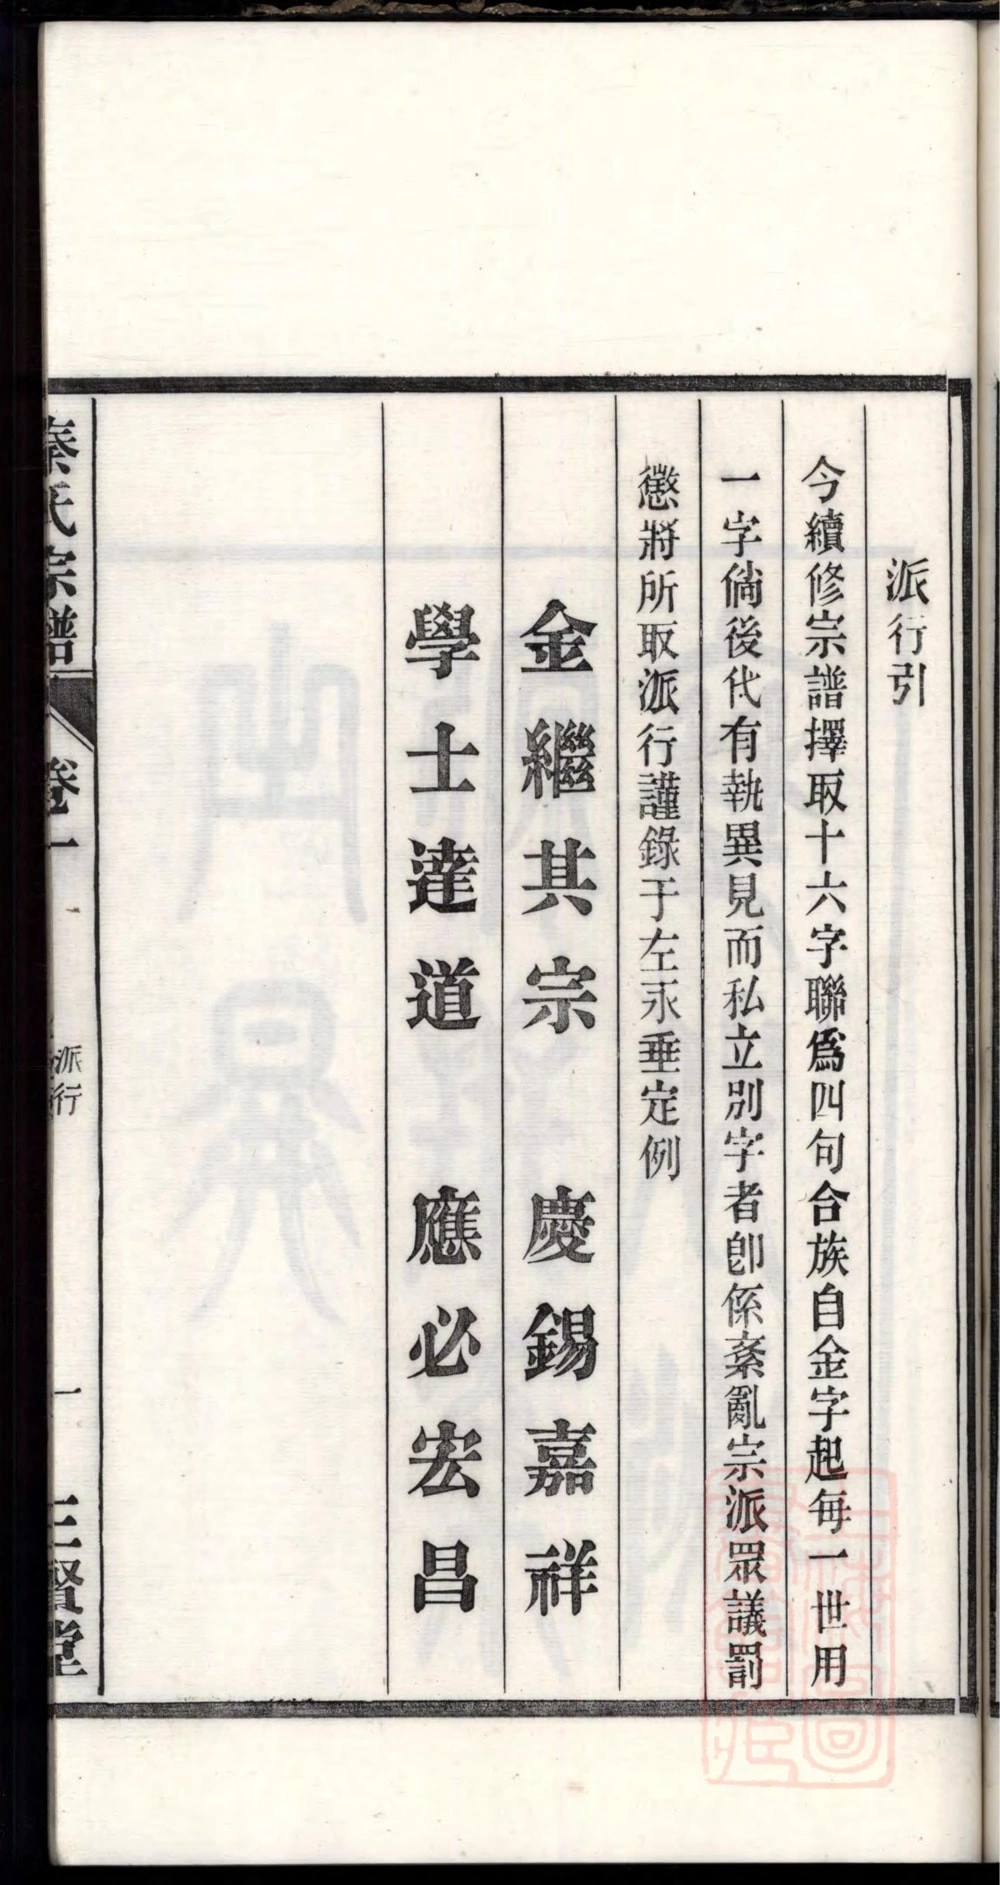 派行引
今續修宗譜擇取十六字聯爲四句合族自金字起每一世用
一字倘後代有執異見而私立別字者卽係紊亂宗派眾議罰
懲將所取派行謹錄于左永垂定例
金繼其宗 慶錫嘉祥
學士達道 應必宏昌
氏宗譜 卷一 派行 一 三賢堂